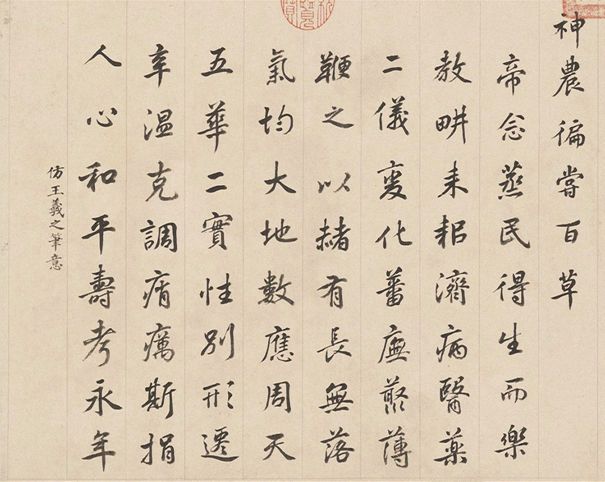 神農徧嘗百草
帝念蒸民得生而樂
教畊耒耜濟病醫藥
二儀變化蕃廡藂薄
鞭之以赭有長無落
氣均大地數應周天
五華二實性別形遷
辛溫克調痟癘斯捐
人心和平壽考永年
仿王羲之筆意